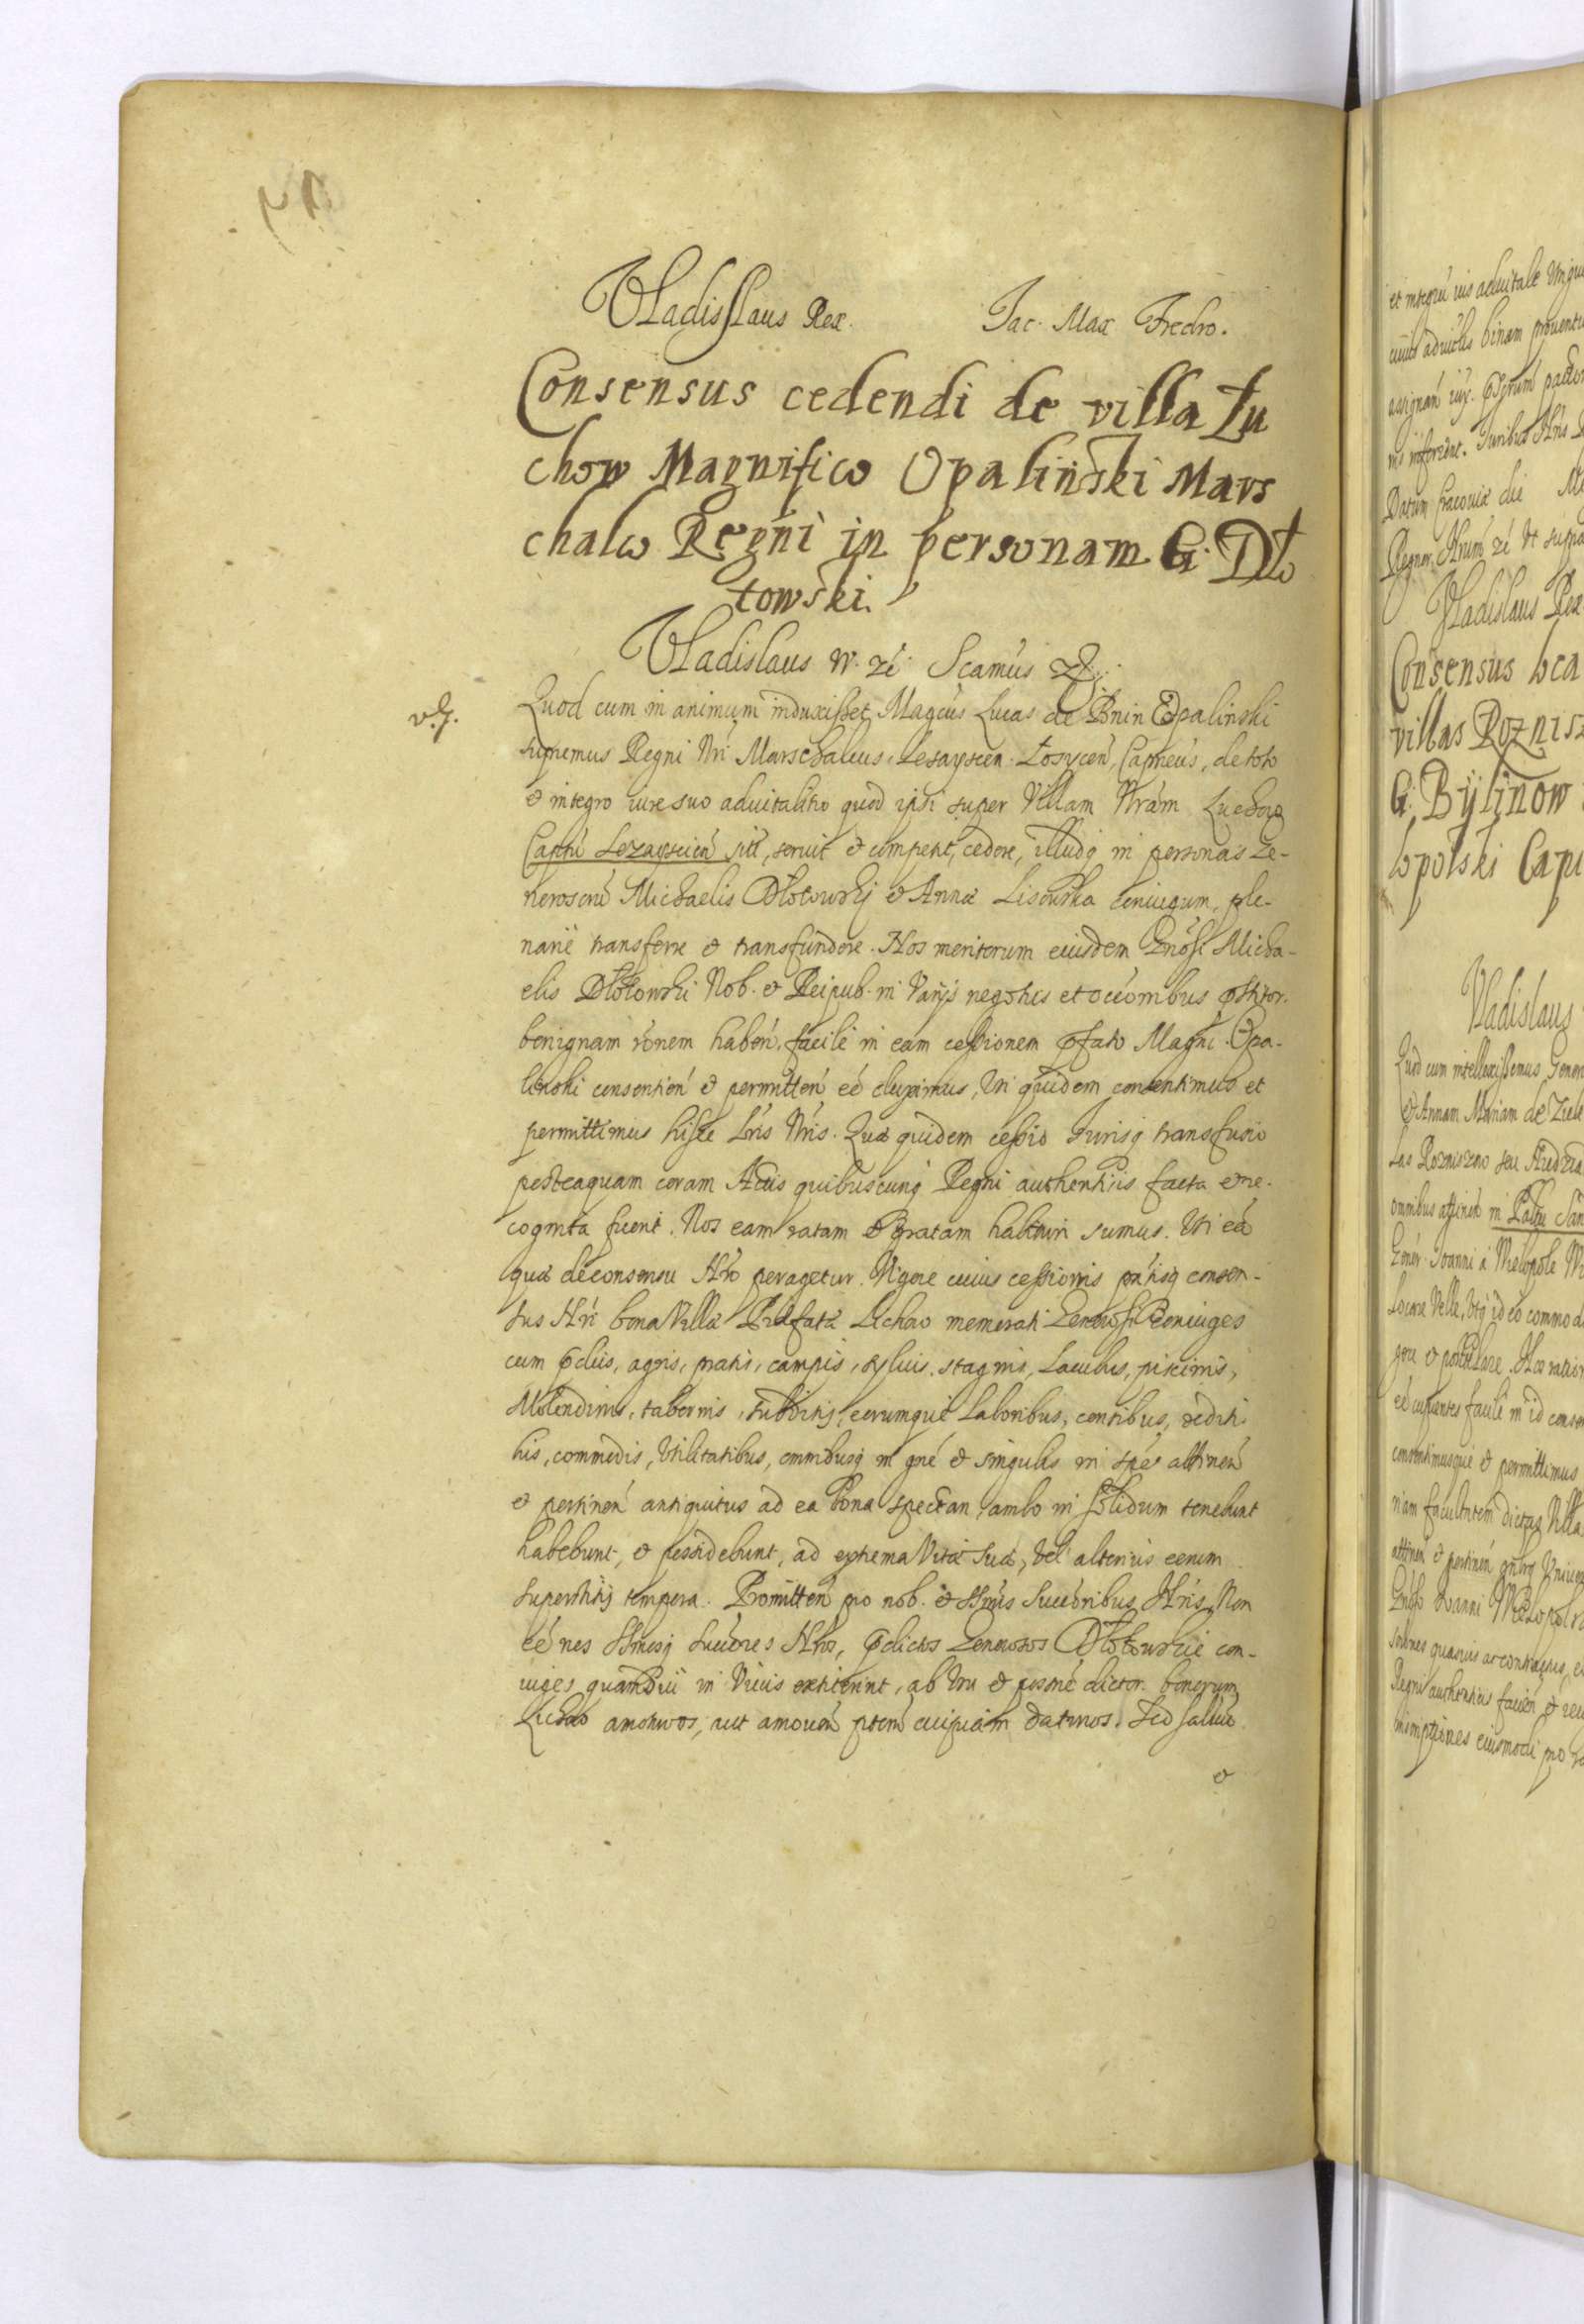 Vladislaus Rex. Jac. Max Fredro.
Consensus cedendi de villa Łu
chow Magnifico Opalinski Mars
chalco Regni in personam G. Dło
towski.
Vladislaus IV. zé Scamus
Quod cum in animum induxisset Magcus Lucas de Bnin Opalinski
supremus Regni Nri Marschalcus, Lesayscen. Łosycen, Capneus, de toto
& integro iure suo aduitalitio quod ipsi super Villam Nram Luchow
Captu Lezayscien sit, seruit & competit, cedere, illudq in personas Ge-
nerosorum Michaelis Dłotowskj & Annæ Lisowska coniugum, ple-
narie transferre & transfundere. Nos meritorum eiusdem Gnosi Micha-
elis Dłotowski Nob. & Reipub. in Varijs negotiis et occonibus
benignam ronem haben. facile in eam cessionem pfato Magci Opa-
linski consentien & permitten eé duximus, Uti quidem consentimus et
permittimus hisce Lris Nris. Quæ quidem cessio Jurisq transfusio
posteaquam coram Actis quibuscunq Regni authenticis facta & re-
cognita fuerit. Nos eam ratam & gratam habituri sumus. Uti ea
quæ de consensu Nro peragetur. Vigore cuius cessionis pntisq consen-
sus Nri bona Villæ Præfatæ Luchow memorati Generosi Coniuges
cum pdiis, agris, pratis, campis, syluis, stagnis, Lacubus, piscinis,
Molendinis, tabernis, subditis, eorumque Laboribus, censibus, rediti-
bus, commodis, Utilitatibus, omnibusq in gné & singulis in spé attinen
& pertinen antiquitus ad ea bona spectan, ambo in solidum tenebunt
habebunt, & possidebunt, ad extrema Vitæ suæ, vel alterius eorum
superstitis tempora. Promitten pro nob. & Smis Succoribus Nris, Non
eé nos Smosq Succores Nros, pdictos Generosos Dłotowskie con-
iuges quamdiu in Viuis extiterint, ab Usu & possne dictor. bonorum
Luchow amoturos, aut amouen ptem cuipiam daturos. Sed saluo
&
et integru ius aduitale
binam
Datum Cracouiæ die
Regnor. Nrum zé Ut supra
Vladislaus Rex
Consensus loca
villas Roznisz
G. Bylinow
lopolski Capi
Vladislaus
Quod cum intellexissemus Gener
& Annam Mariam de
las Roznisz
omnibus attinen in
Gener. Joanni a Wielopole
Locare Velle, Utq id eo commod
eé cupientes facile in id conse
consentimusque & permittimus
niam facultatem dictas Villa
attinen & pertinen
Gnoso Joanni Wielopols
Regni authenticis
eiusmodi pro